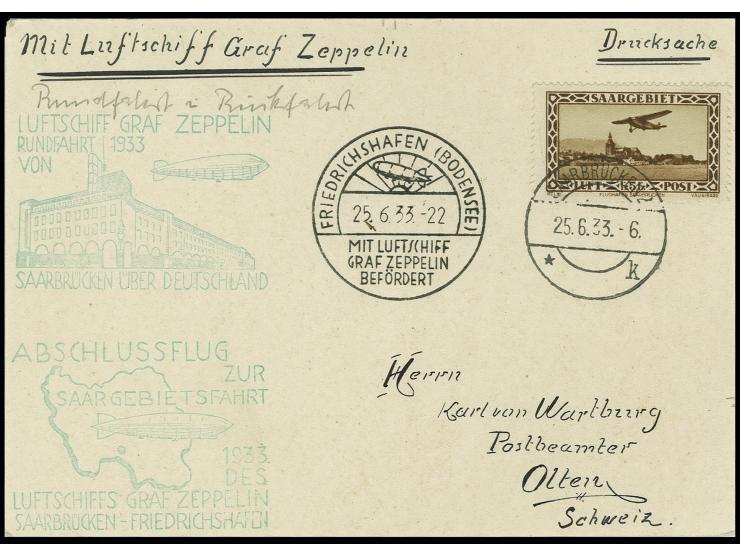 Mit Luftschiff Graf Zeppelin
Drucksache
Rundfahrt u Rückfahrt
LUFTSCHIFF GRAF ZEPPELIN
RUNDFAHRT 1933
VON
SAARBRÜCKEN ÜBER DEUTSCHLAND
FRIEDRICHSHAFEN (BODENSEE)
25.6.33.-22
MIT LUFTSCHIFF
GRAF ZEPPELIN
BEFÖRDERT
SAARGEBIET
LUFT- POST
FLUGHAFEN SAARBRÜCKEN
SAARBRÜCKEN 2
25.6.33.-6.
* k
ABSCHLUSSFLUG
ZUR
SAARGEBIETSFAHRT
1933.
DES
LUFTSCHIFFS GRAF ZEPPELIN
SAARBRÜCKEN-FRIEDRICHSHAFEN
Herrn
Karl von Wartburg
Postbeamter
Olten
Schweiz.